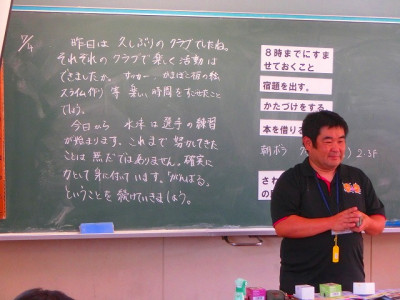 7/4
昨日は久しぶりのクラブでしたね。
それぞれのクラブで楽しく活動は
できましたか。サッカー、かまぼこ板の絵、
スライム作り等楽しい時間をすごせたこと
でしょう。
今日から水泳は選手の練習
が始まります。これまで努力してきた
ことは無だではありません。確実に
力として身に付いています。「がんばる」
ということを続けていきましょう。
8時までにすま
せておくこと
宿題を出す。
かたづけをする
本を借りる
朝ボラ
2.3F